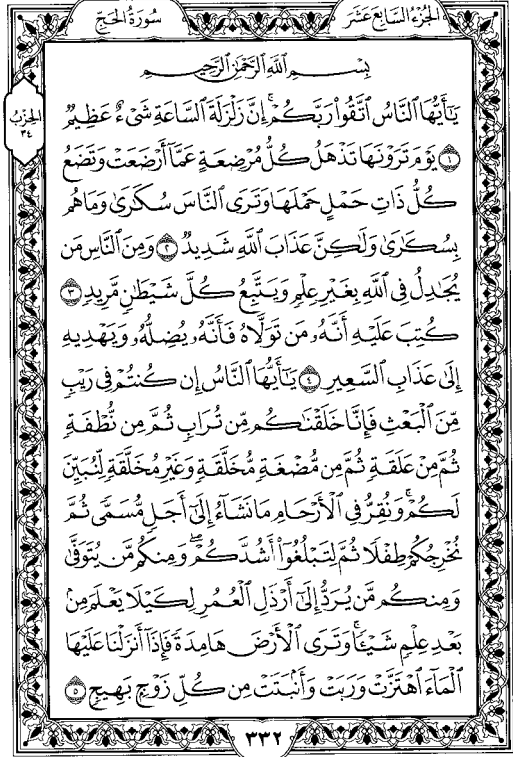 سُورَةُ الحَجّ
الجُزْءُ السَّابِعَ عَشَرَ
بِسْمِ ٱللَّهِ ٱلرَّحْمَٰنِ ٱلرَّحِيمِ
الحِزْبُ
٣٤
يَٰٓأَيُّهَا ٱلنَّاسُ ٱتَّقُواْ رَبَّكُمْۚ إِنَّ زَلْزَلَةَ ٱلسَّاعَةِ شَىْءٌ عَظِيمٌ
١ يَوْمَ تَرَوْنَهَا تَذْهَلُ كُلُّ مُرْضِعَةٍ عَمَّآ أَرْضَعَتْ وَتَضَعُ
كُلُّ ذَاتِ حَمْلٍ حَمْلَهَا وَتَرَى ٱلنَّاسَ سُكَٰرَىٰ وَمَا هُم
بِسُكَٰرَىٰ وَلَٰكِنَّ عَذَابَ ٱللَّهِ شَدِيدٌ ٢ وَمِنَ ٱلنَّاسِ مَن
يُجَٰدِلُ فِى ٱللَّهِ بِغَيْرِ عِلْمٍ وَيَتَّبِعُ كُلَّ شَيْطَٰنٍ مَّرِيدٍ ٣
كُتِبَ عَلَيْهِ أَنَّهُۥ مَن تَوَلَّاهُ فَأَنَّهُۥ يُضِلُّهُۥ وَيَهْدِيهِ
إِلَىٰ عَذَابِ ٱلسَّعِيرِ ٤ يَٰٓأَيُّهَا ٱلنَّاسُ إِن كُنتُمْ فِى رَيْبٍ
مِّنَ ٱلْبَعْثِ فَإِنَّا خَلَقْنَٰكُم مِّن تُرَابٍ ثُمَّ مِن نُّطْفَةٍ
ثُمَّ مِنْ عَلَقَةٍ ثُمَّ مِن مُّضْغَةٍ مُّخَلَّقَةٍ وَغَيْرِ مُخَلَّقَةٍ لِّنُبَيِّنَ
لَكُمْۚ وَنُقِرُّ فِى ٱلْأَرْحَامِ مَا نَشَآءُ إِلَىٰٓ أَجَلٍ مُّسَمًّى ثُمَّ
نُخْرِجُكُمْ طِفْلًا ثُمَّ لِتَبْلُغُوٓاْ أَشُدَّكُمْۖ وَمِنكُم مَّن يُتَوَفَّىٰ
وَمِنكُم مَّن يُرَدُّ إِلَىٰٓ أَرْذَلِ ٱلْعُمُرِ لِكَيْلَا يَعْلَمَ مِنۢ
بَعْدِ عِلْمٍ شَيْـًٔاۚ وَتَرَى ٱلْأَرْضَ هَامِدَةً فَإِذَآ أَنزَلْنَا عَلَيْهَا
ٱلْمَآءَ ٱهْتَزَّتْ وَرَبَتْ وَأَنۢبَتَتْ مِن كُلِّ زَوْجٍۭ بَهِيجٍ ٥
٣٣٢